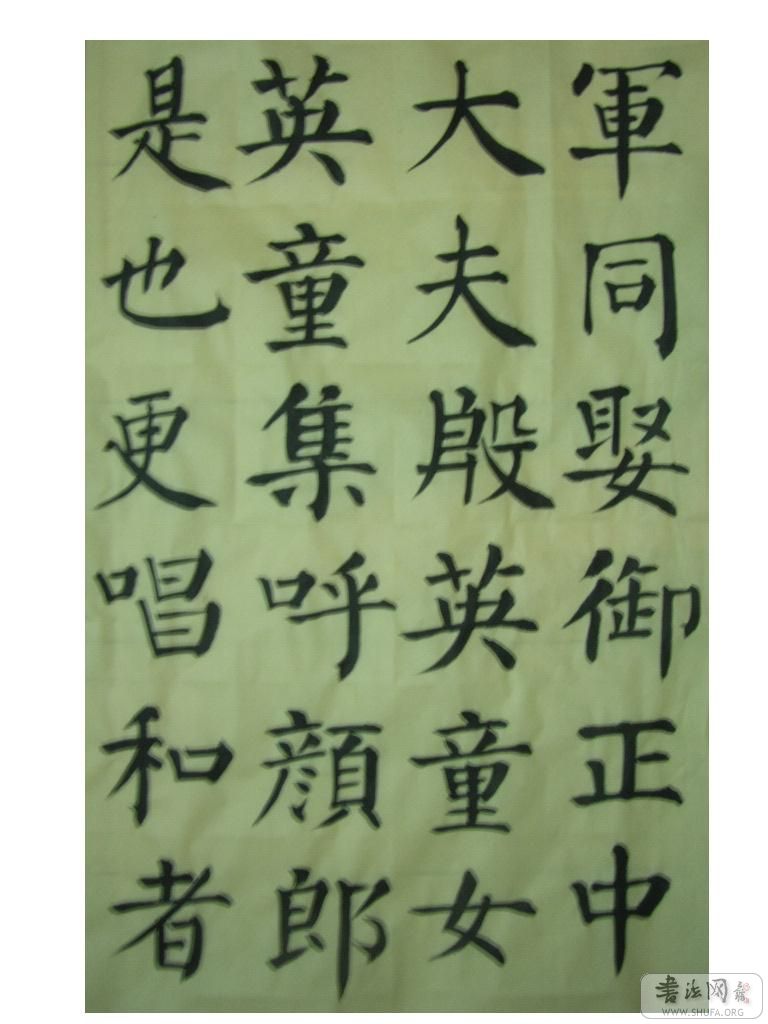 軍同娶御正中
大夫殷英童女
英童集呼顔郎
是也更唱和者
書法网
WWW.SHUFA.ORG